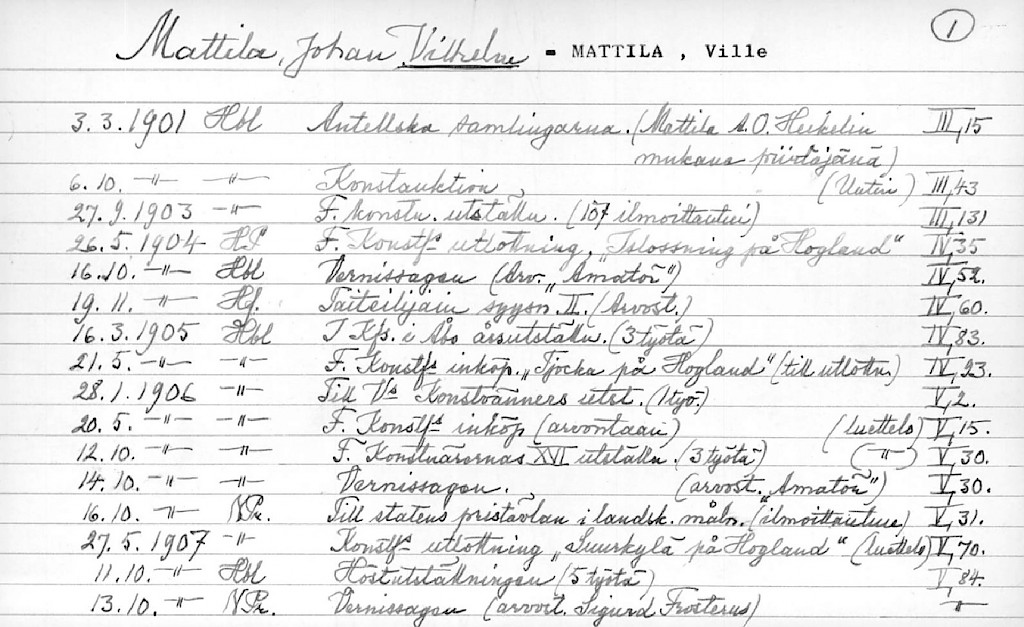 1
Mattila, Johan Vilhelm - MATTILA , Ville
3.3.1901 Hbl Antellska samlingarna. (Mattila A.O. Heikelin III,15
mukana piirtäjänä)
6.10. -"- -"- Konstauktion, (Uutin) III,43
27.9.1903 -"- F. konstn. utställn. (107 ilmoittautui) III,131
26.5.1904 H.P F. Konstfs utlottning, "Islossning på Hogland" IV,35
16.10. -"- Hbl Vernissagen (Arv. "Amatör") IV,52.
19.11. -"- Hf. Taiteilijain syysn. II. (Arvost.) IV,60.
16.3.1905 Hbl I Kfs. i Åbo årsutställn. (3 työtä) IV,83.
21.5. -"- -"- F. Konstfs inköp. "Tjocka på Hogland" (till utlottn.) IV,23.
28.1.1906 -"- Till Vs Konstvänners utst. (1 työ.) V,2.
20.5. -"- -"- F. Konstfs inköp (arvontaan) (luettelo) V,15.
12.10. -"- -"- F. Konstnärernas XVI utställn. (3 työtä) (-"-) V,30.
14.10. -"- -"- Vernissagen. (arvost. "Amatör") V,30.
16.10. -"- NPr. Till statens pristävlan i landsk. måln. (ilmoittautui) V,31.
27.5.1907 -"- Konstfs utlottning "Suurkylä på Hogland" (luettelo) V,70.
11.10. -"- Hbl Höstutställningen (5 työtä) V,84.
13.10. -"- NPr. Vernissagen (arvost. Sigurd Frosterus) -"-